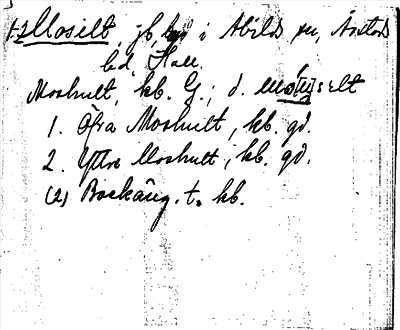 1-2 Mosilt, jb, i Abilds sn, Årstads
hd, Hall.
Moshult, kb. G.; d. mos[u]selt
1. Öfra Moshult, kb. gd.
2. Yttre Moshult, kb. gd.
(2) Backäng. t. kb.